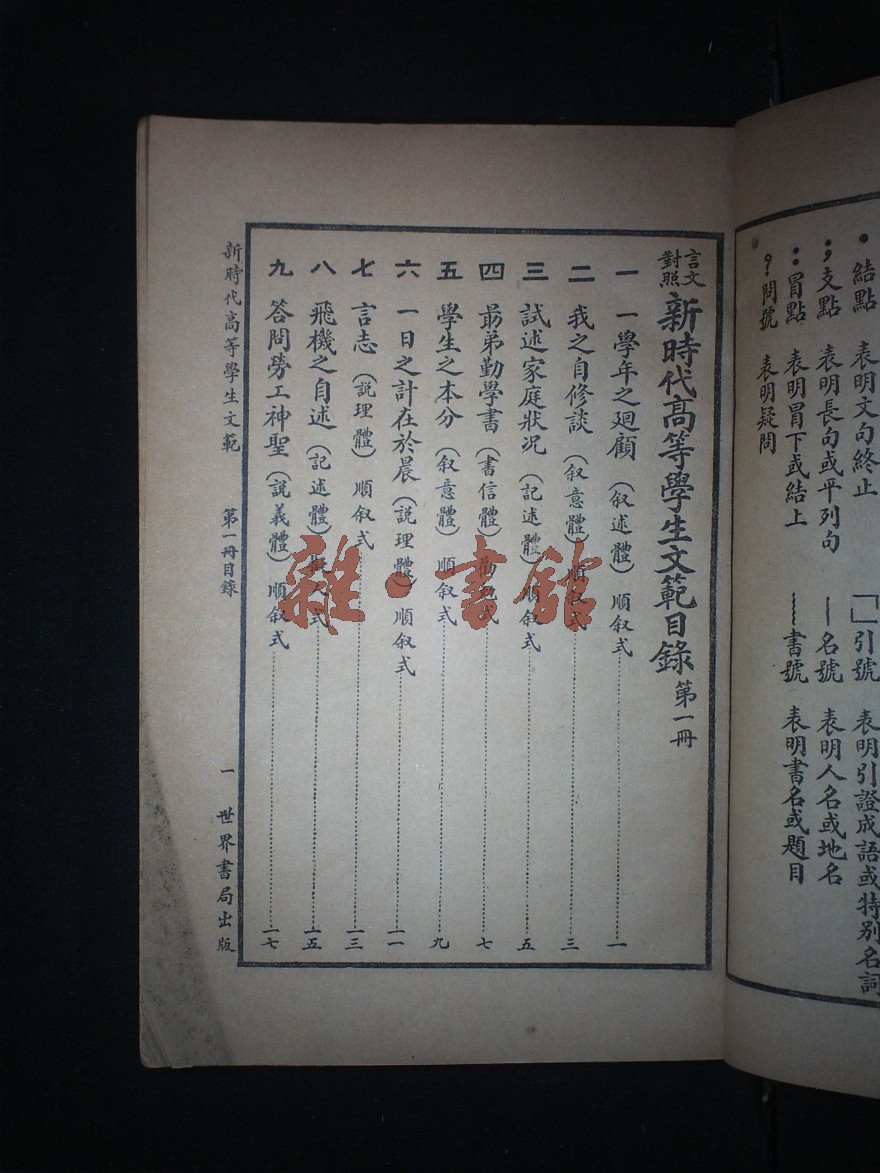 •結點 表明文句終止 「」引號 表明引證成語或特別名詞
；支點 表明長句或平列句 —名號 表明人名或地名
：冒點 表明冒下或結上 ﹏書號 表明書名或題目
？問號 表明疑問
言文對照 新時代高等學生文範目錄 第一冊
一 一學年之廻顧（叙述體）順叙式 一
二 我之自修談（叙意體）順叙式 三
三 試述家庭狀況（記述體）順叙式 五
四 勗弟勤學書（書信體）勸勉式 七
五 學生之本分（叙意體）順叙式 九
六 一日之計在於晨（説理體）順叙式 一一
七 言志（説理體）順叙式 一三
八 飛機之自述（記述體）擬人式 一五
九 答問勞工神聖（説義體）順叙式 一七
新時代高等學生文範 第一冊目錄 一 世界書局出版
雜·書館